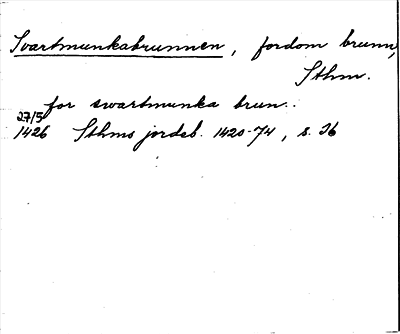 Svartmunkabrunnen, fordom brunn,
Sthm.
for swartmunka brun..
27/5
1426 Sthms jordeb. 1420-74, s. 26